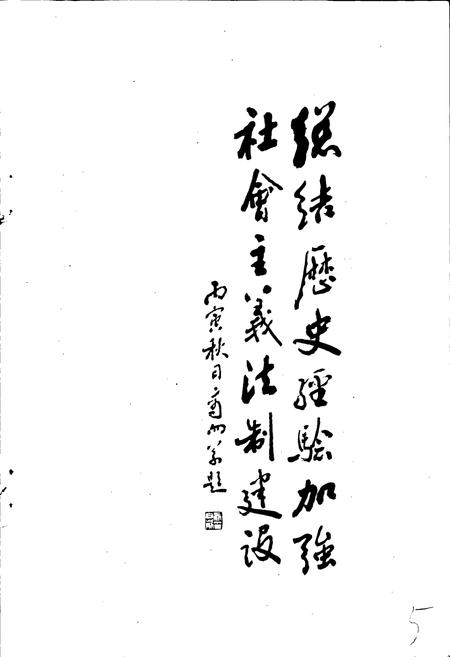 總結歷史經驗加強
社會主義法制建設
丙寅秋日商州？題
5